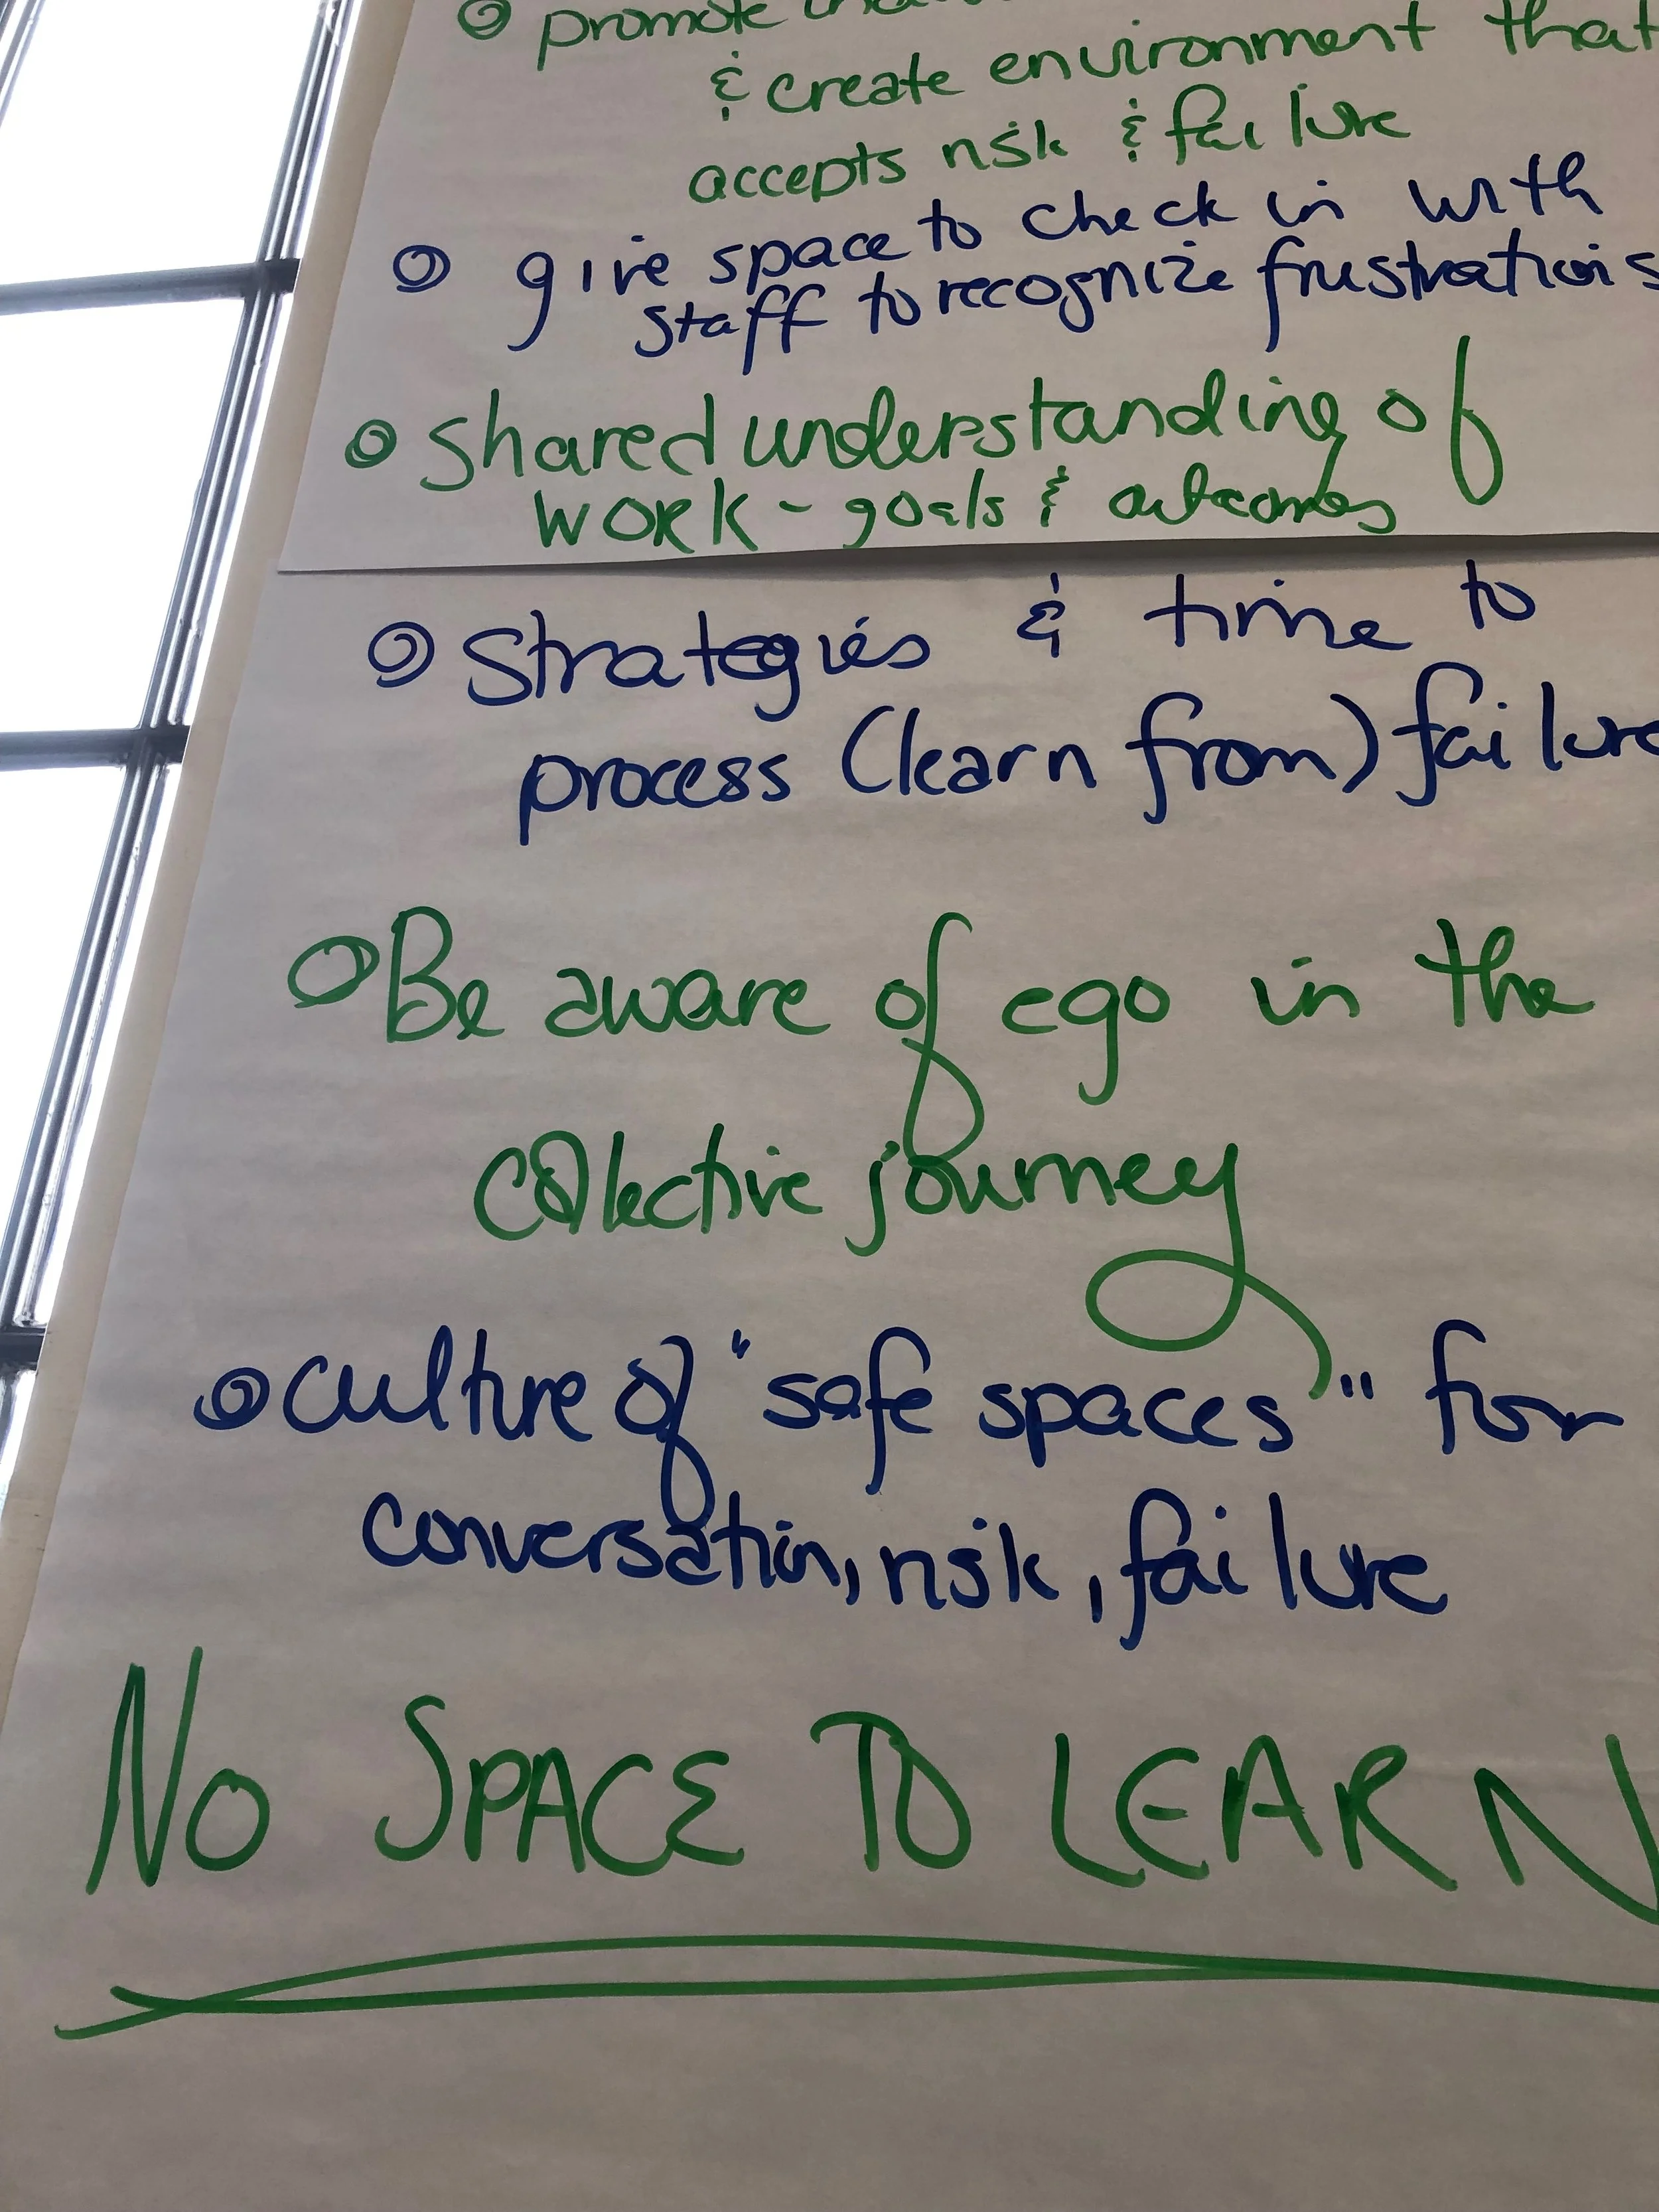 promote
& create environment that
accepts risk & failure
give space to check in with
staff to recognize frustrations
shared understanding of
work - goals & outcomes
strategies & time to
process (learn from) failure
Be aware of ego in the
collective journey
culture of "safe spaces" for
conversation, risk, failure
NO SPACE TO LEARN